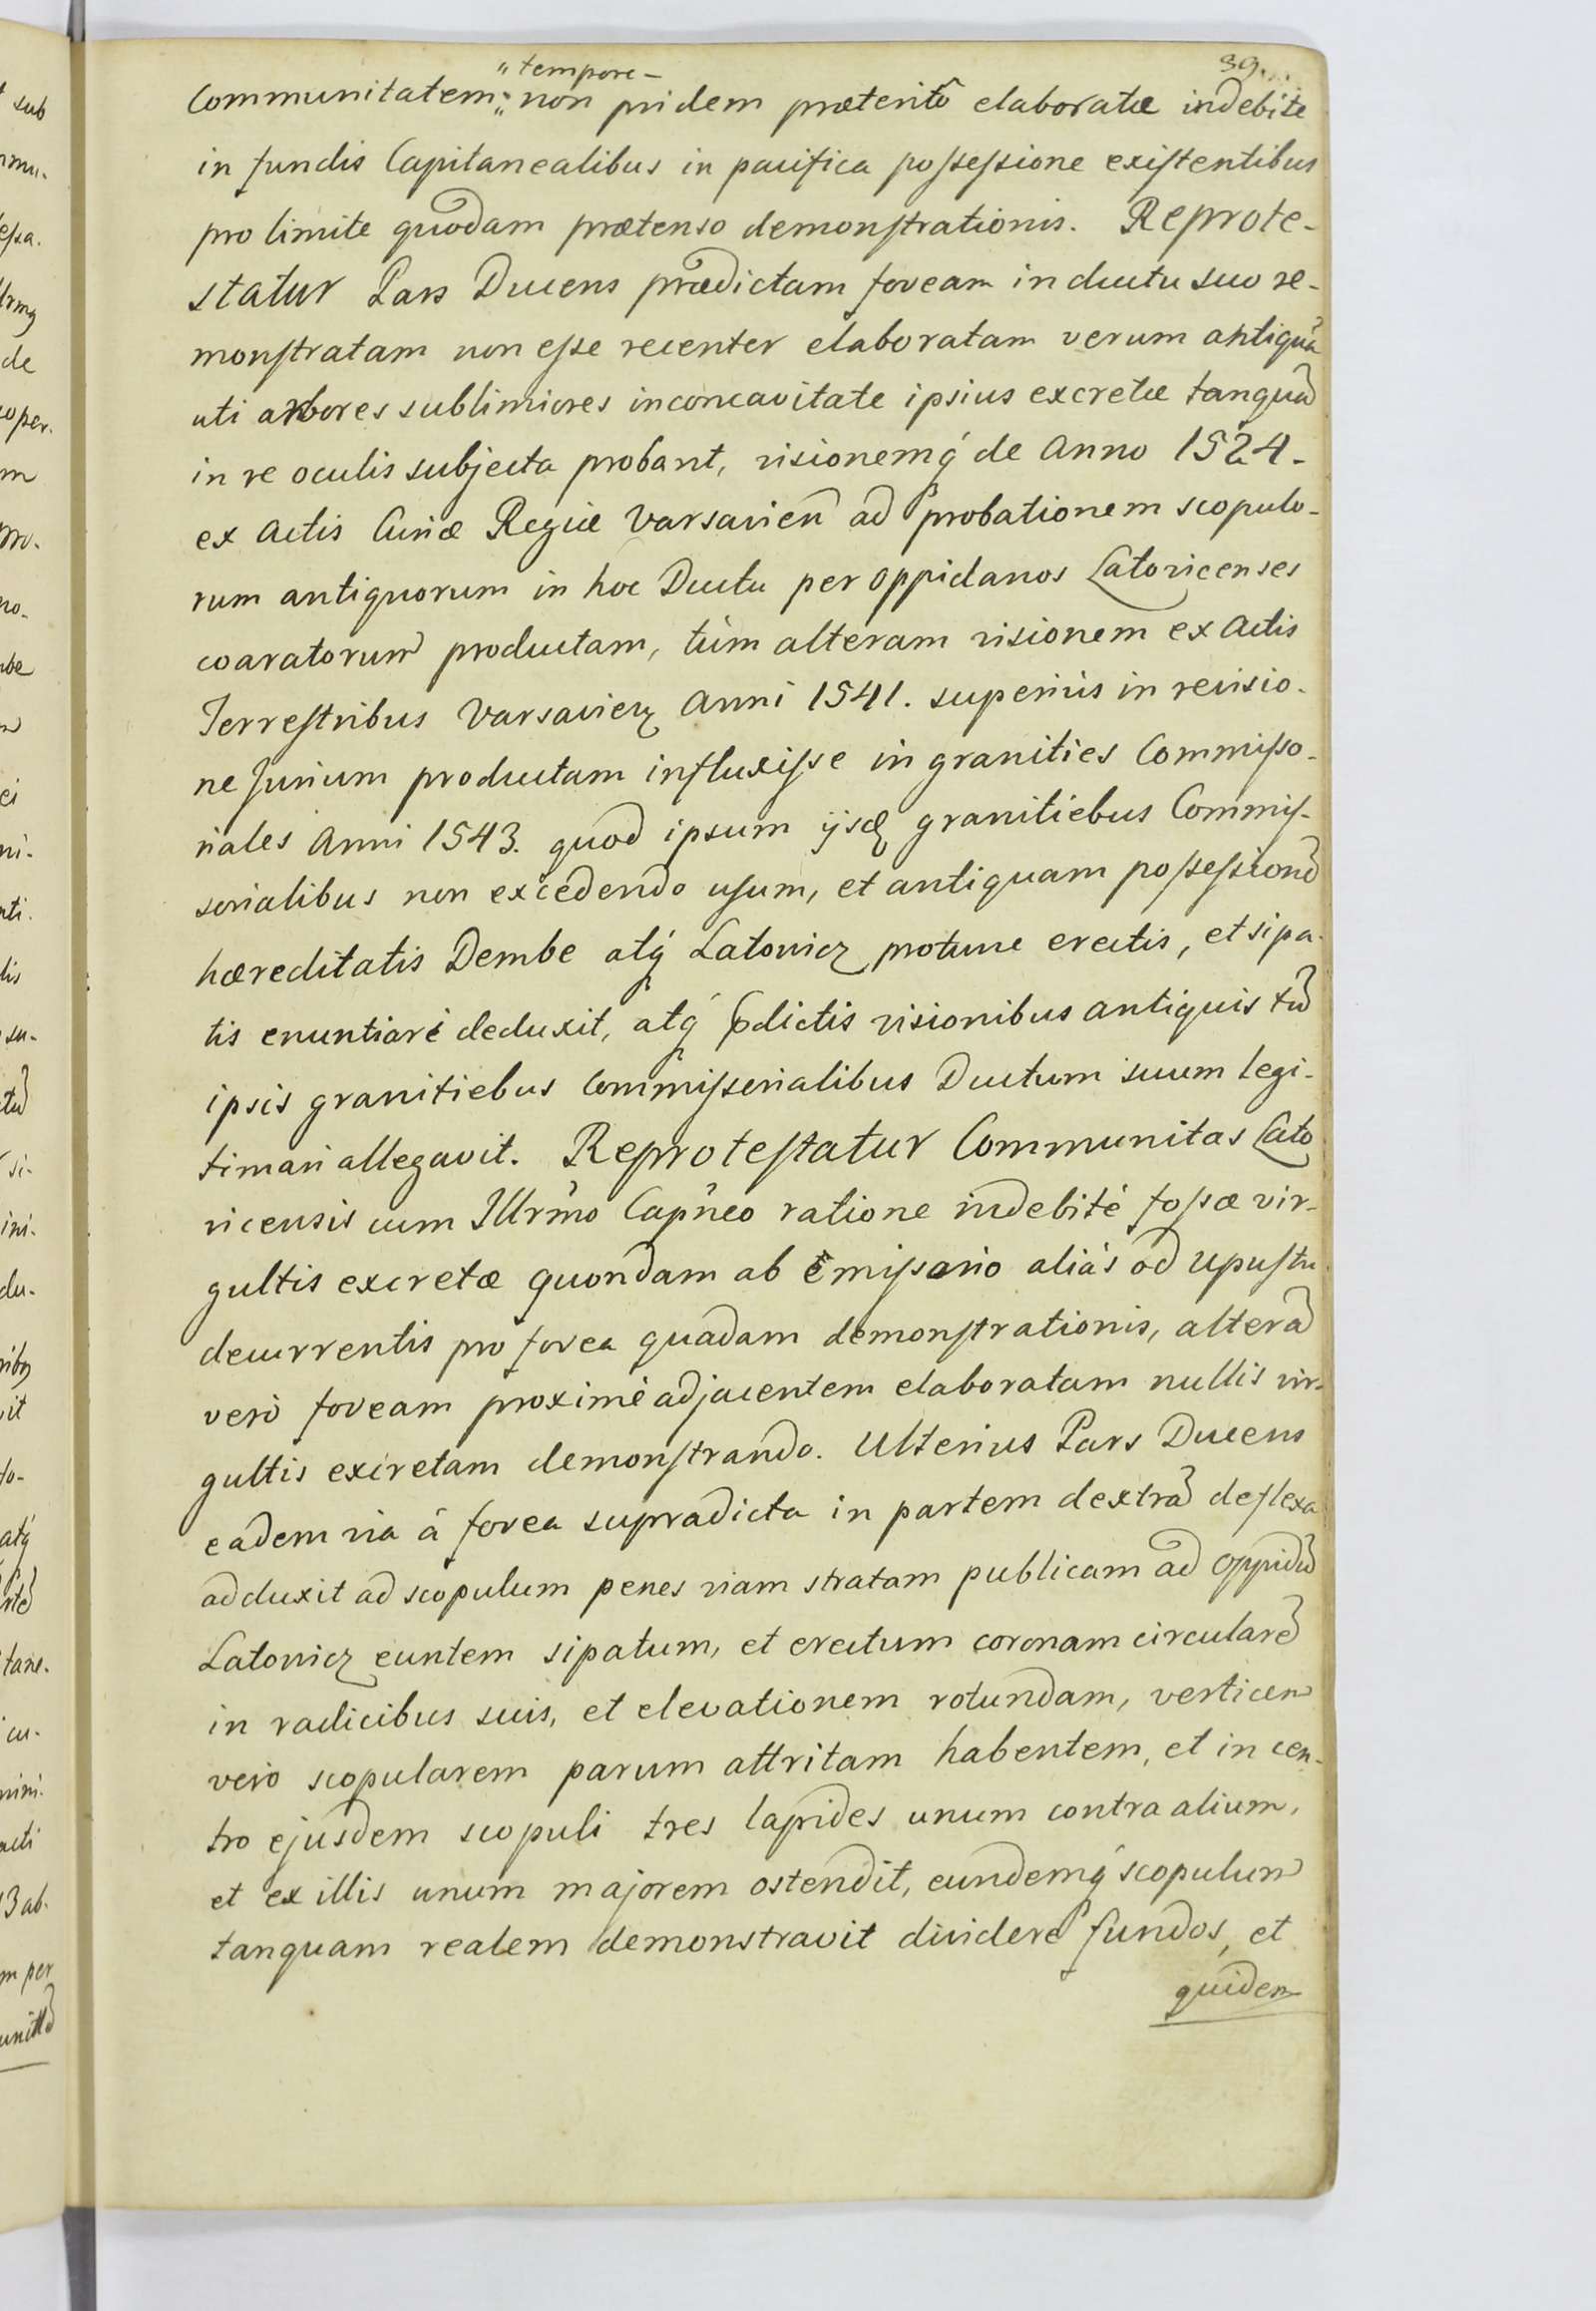 39.
"tempore-
Communitatem „ non pridem præteritô elaboratæ indebite
in fundis Capitanealibus in pacifica poſseſsione exiſtentibus
pro limite quodam prætenso demonſtrationis. Reprote-
statur Pars Ducens prædictam foveam in ductu suo re-
monſtratam non eſse recenter elaboratam verum antiquã
uti arbores sublimiores in concavitate ipsius excretæ tanquã
in re oculis subjecta probant, visionemq́ de Anno 1524.
ex Actis Curiæ Regiæ Varsavień ad probationem scopulo-
rum antiquorum in hoc Ductu per oppidanos Latovicenses
coaratorum productam, tùm alteram visionem ex Actis
Terreſtribus Varsavieņ Anni 1541. superiùs in revisio-
ne Jurium productam influxiſse in granities Commiſso-
riales Anni 1543. quod ipsum ijsdē granitiebus Commiſ-
sorialibus non excedendo uſum, et antiquam poſseſsionē
hæreditatis Dembe atq́ Latovicz protunc erectis, et sipa-
tis enuntiari deduxit, atq́ p̃dictis visionibus antiquis tũ
ipsis granitiebus Commiſsorialibus Ductum suum legi-
timari allegavit. Reproteſtatur Communitas Lato
vicensis cum Illr̃mo Cap̃neo ratione indebitè foſsæ vir-
gultis excretæ quondam ab Emiſsario aliàs od Upuſtu
decurrentis pro fovea quadam demonſtrationis, alterã
verò foveam proximè adjacentem elaboratam nullis vir-
gultis excretam demonſtrando. Ulterius Pars Ducens
eadem via à fovea supradicta in partem dextrã deflexa
adduxit ad scopulum penes viam stratam publicam ad Oppidũ
Latovicz euntem sipatum, et erectum coronam circularē
in radicibus suis, et elevationem rotundam, verticem
verò scopularem parum attritam habentem, et in cen-
tro ejusdem scopuli tres lapides unum contra alium,
et ex illis unum majorem ostendit, eundemq́ scopulum
tanquam realem demonstravit dividere fundos, et
quidem